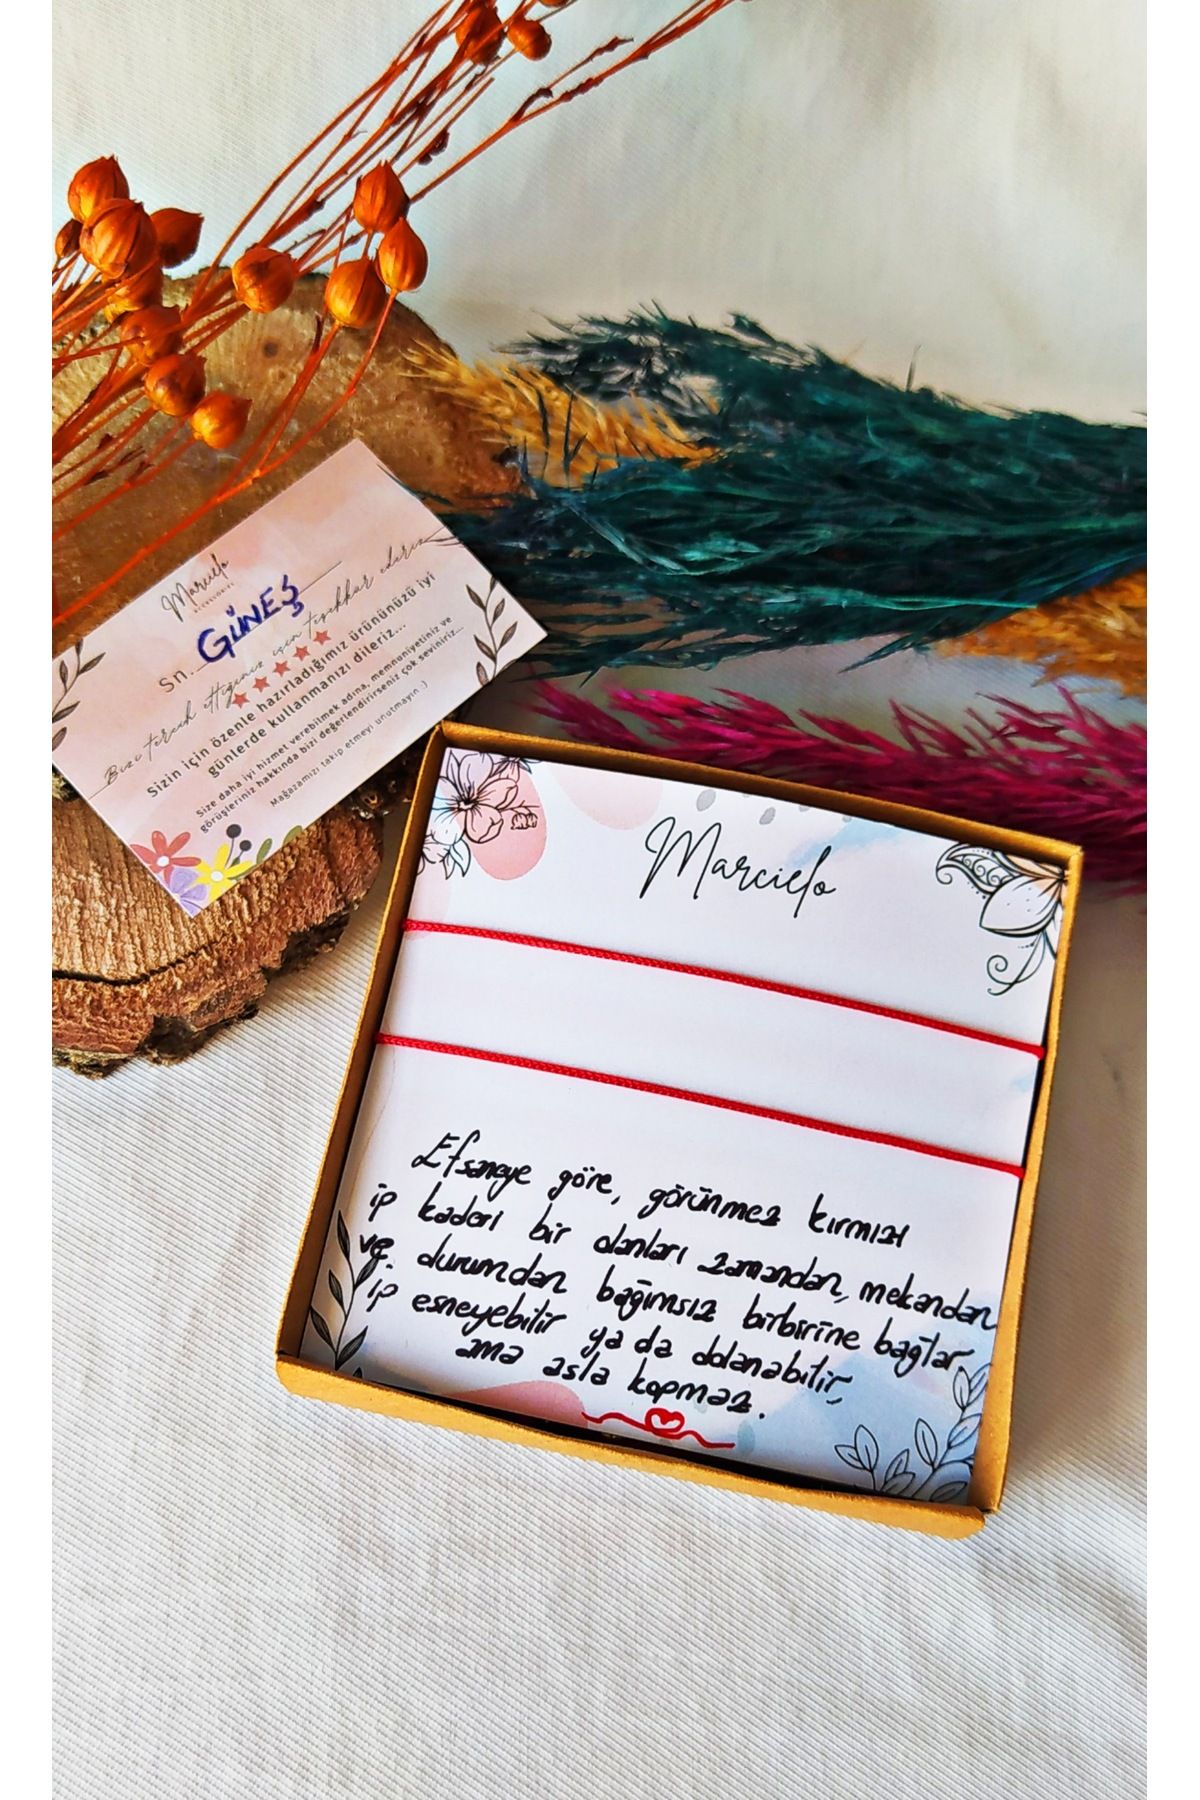 Marcielo
ACCESSORIES
Sn. GÜNEŞ
Bizi tercih ettiğiniz için teşekkür ederiz
Sizin için özenle hazırladığımız ürününüzü iyi
günlerde kullanmanızı dileriz...
Size daha iyi hizmet verebilmek adına, memnuniyetiniz ve
görüşleriniz hakkında bizi değerlendirirseniz çok seviniriz...
Mağazamızı takip etmeyi unutmayın :)
Marcielo
Efsaneye göre, görünmez kırmızı
ip kaderi bir olanları zamandan, mekandan
ve durumdan bağımsız birbirine bağlar
ip esneyebilir ya da dolanabilir,
ama asla kopmaz.